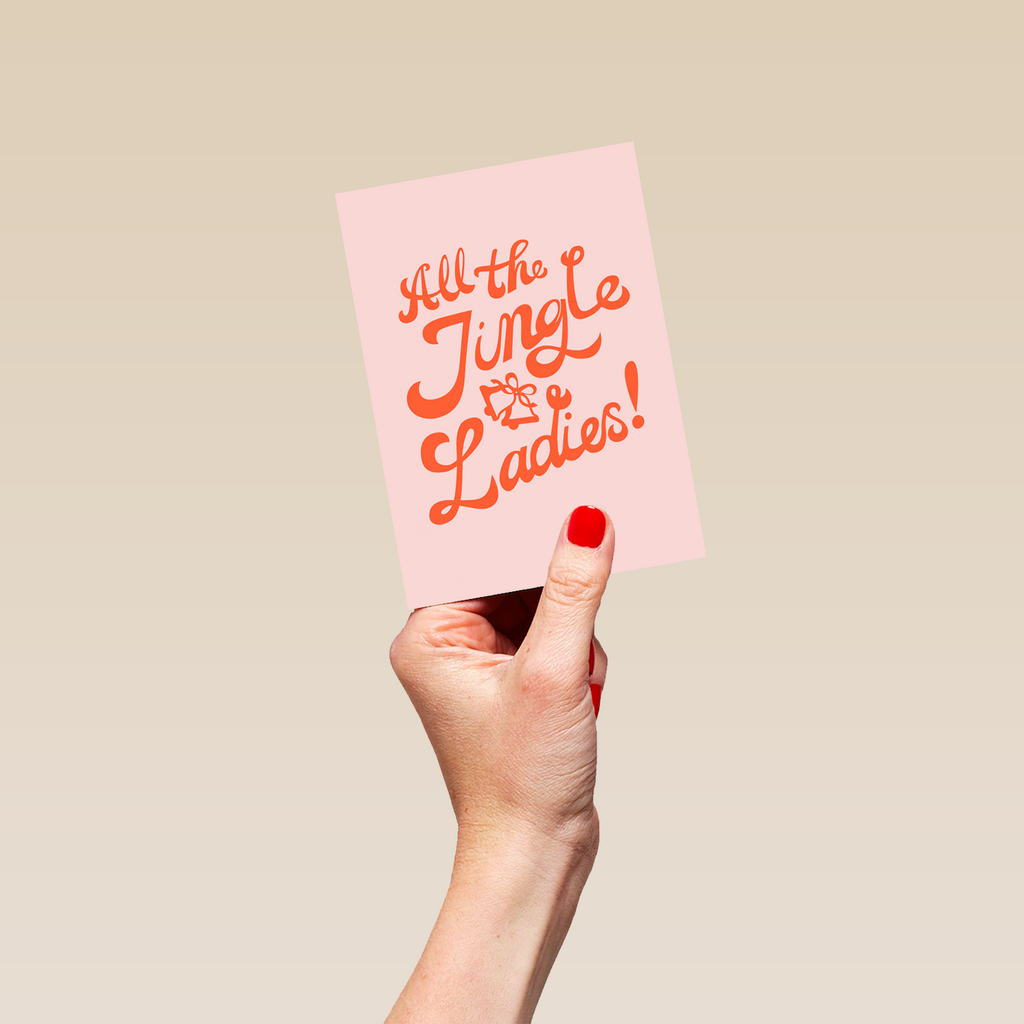 All the
Jingle
Ladies!